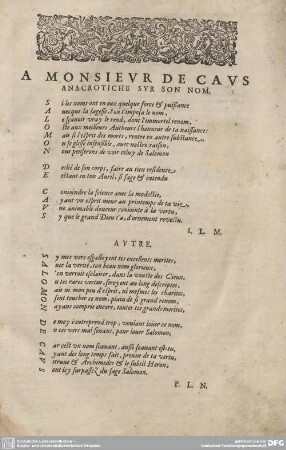 A MONSIEVR DE CAVS
ANACROTICHE SVR SON NOM.
Si les noms ont en eux quelque force & puissance
Auecque la sagesse, & on t'imposa le nom,
Le sçauoir vray le rend, dont l'immortel renom,
Oste aux meilleurs Autheurs l'honneur de ta naissance:
Mais si l'esprit des morts, rentre en autre substance,
Ou se glisse insensible, auec nostre raison,
Non penserons de voir celuy de Salomon
Deslié de son corps, faire au tien residence
Estant en ton Auril, si sage & entendu
Conioindre la science auec la modestie,
Ayant vn esprit meur au printemps de ta vie,
Vne animable douceur conjointe à la vertu,
Sy que le grand Dieu t'a, d'ornement revestu.
S. L. M.
AVTRE.
Sy mes vers esgalloyent tes excellents merites,
Auec la verité, ton beau nom glorieux,
L'on verroit esclairer, dans la voulte des Cieux,
Et tes rares vertus, seroyent au long descriptes,
Mais ni mon peu d'esprit, ni mesmes les charites,
Osent toucher ce nom, plain de si grand renom,
Nayans comprie encore, toutes tes grands merites,
De moy i'entreprend trop, voulant louer ce nom,
Et ces vers mal sonans, pour louer Salomon
Car cest vn nom scauant, aussi scauant est-tu,
Ayant des long temps fait, preuue de ta vertu,
Vitruue & Archimedes & le subtil Heron,
Sont icy surpassez du sage Salomon.
P. L. N.
SALOMON DE CAVS